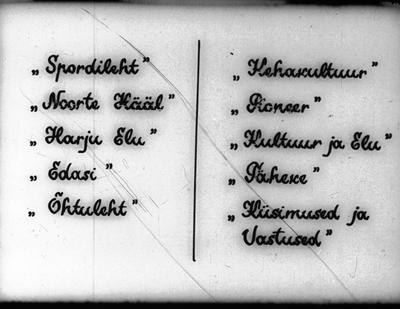 „Spordileht"
„Noorte Hääl"
„Harju Elu"
„Edasi"
„Õhtuleht"
„Kehakultuur"
„Pioneer"
„Kultuur ja Elu"
„Täheke"
„Küsimused ja
Vastused"